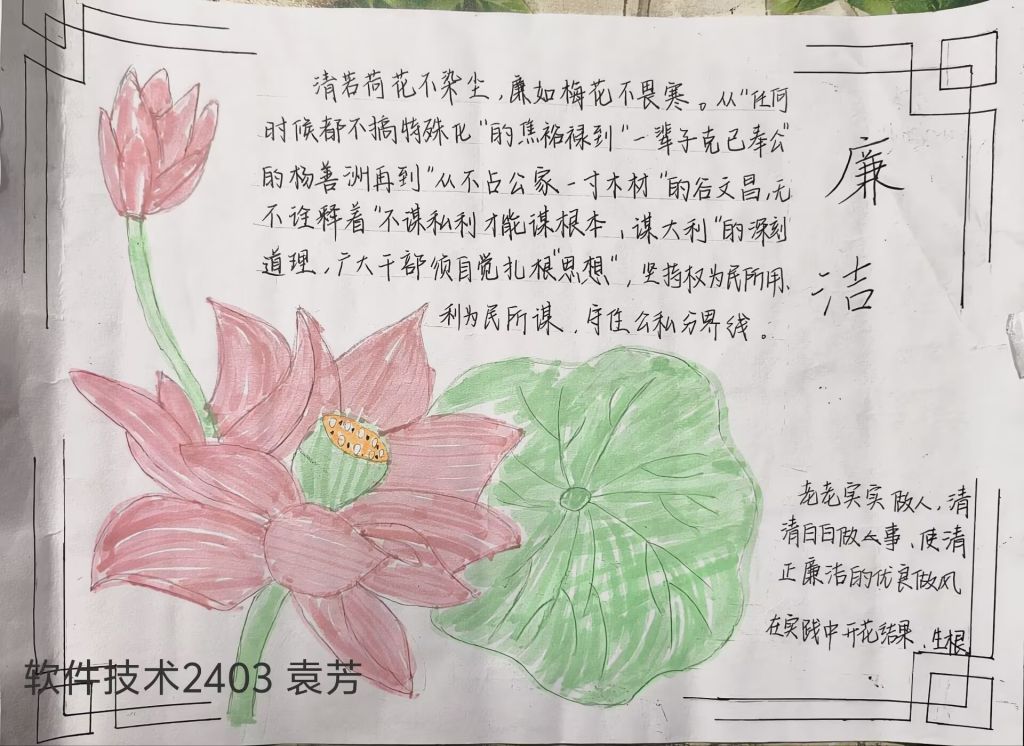 清若荷花不染尘，廉如梅花不畏寒。从"任何
时候都不搞特殊化"的焦裕禄到"一辈子克己奉公"
的杨善洲再到"从不占公家一寸木材"的谷文昌，无
不诠释着"不谋私利才能谋根本，谋大利"的深刻
道理，广大干部须自觉扎根"思想"，坚持权为民所用、
利为民所谋，守住公私分界线。
廉洁
老老实实做人，清
清白白做公事、使清
正廉洁的优良做风
在实践中开花结果、生根
软件技术2403 袁芳